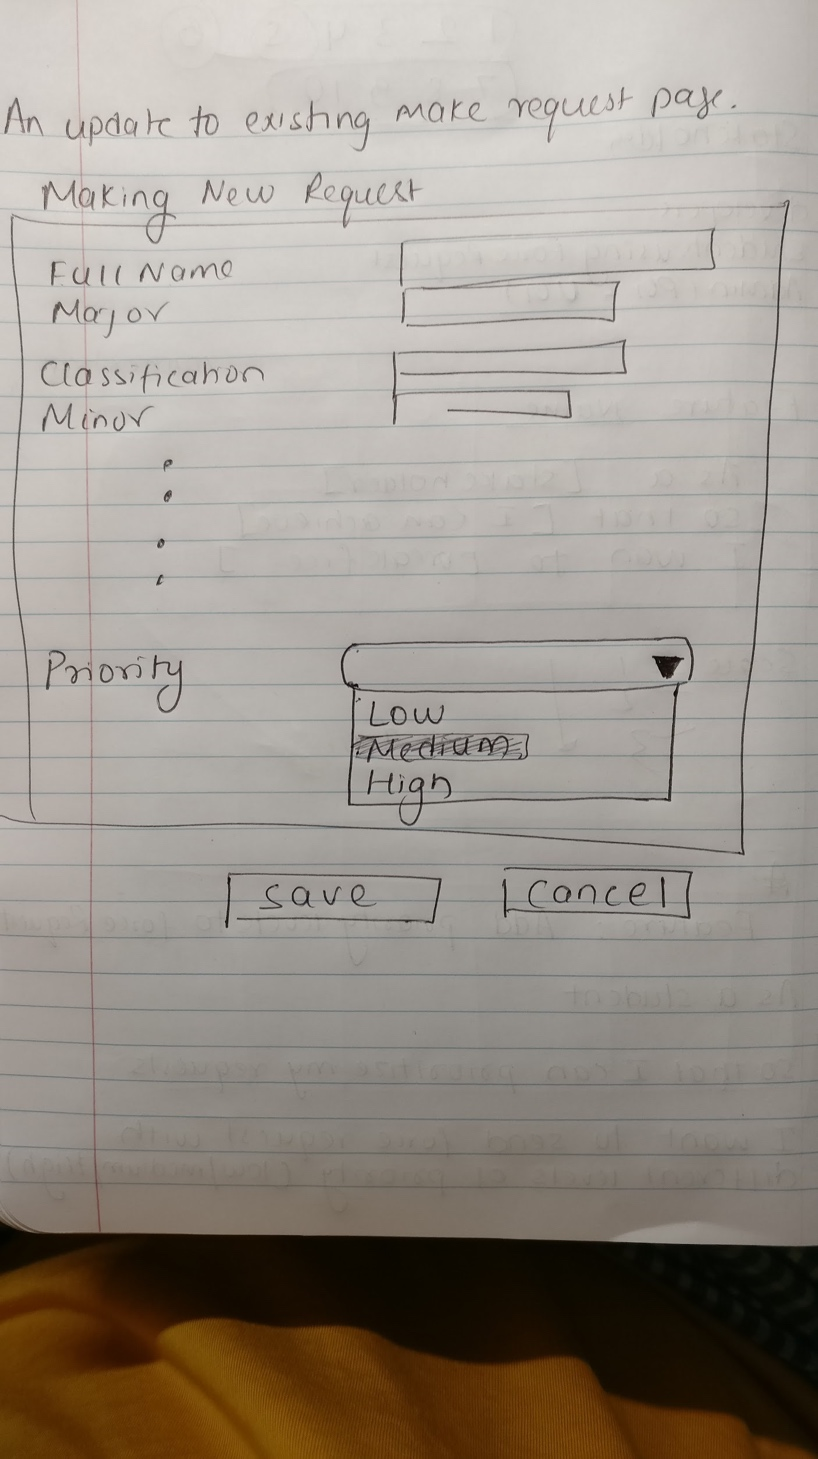 An update to existing make request page.
Making New Request
Full Name
Major
Classification
Minor
Priority
Low
Medium
High
save
cancel